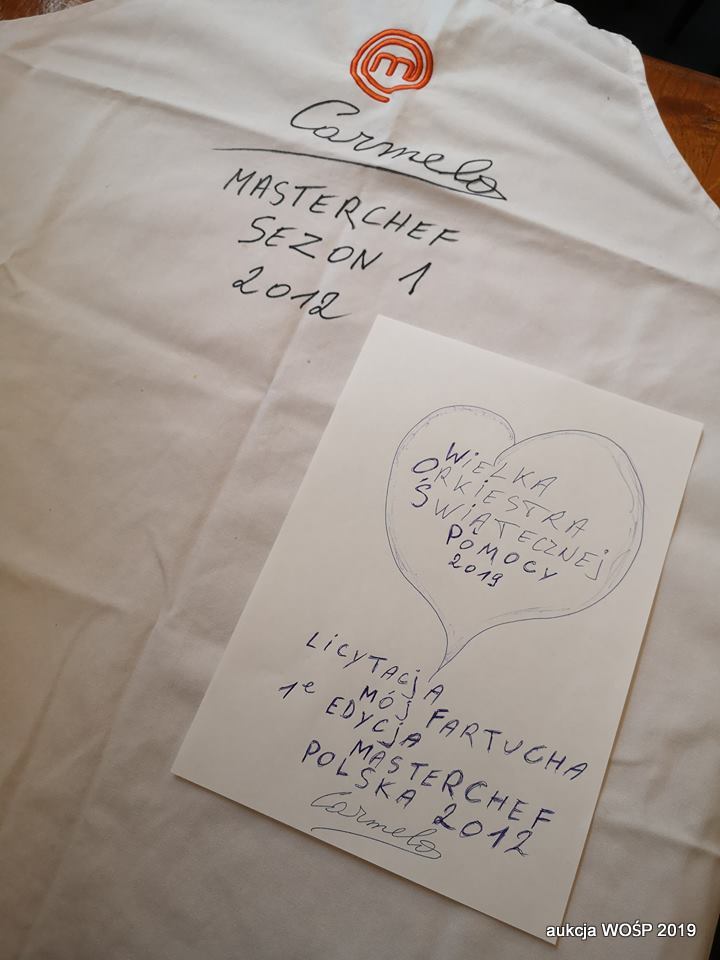 m
Carmelo
MASTERCHEF
SEZON 1
2012
WiELKA
ORKiESTRA
ŚWIĄTECZNEj
POMOCY
2019
LiCYTACjA
MÓj FARTUCHA
1e EDYCjA
MASTERCHEF
POLSKA 2012
Carmelo
aukcja WOŚP 2019